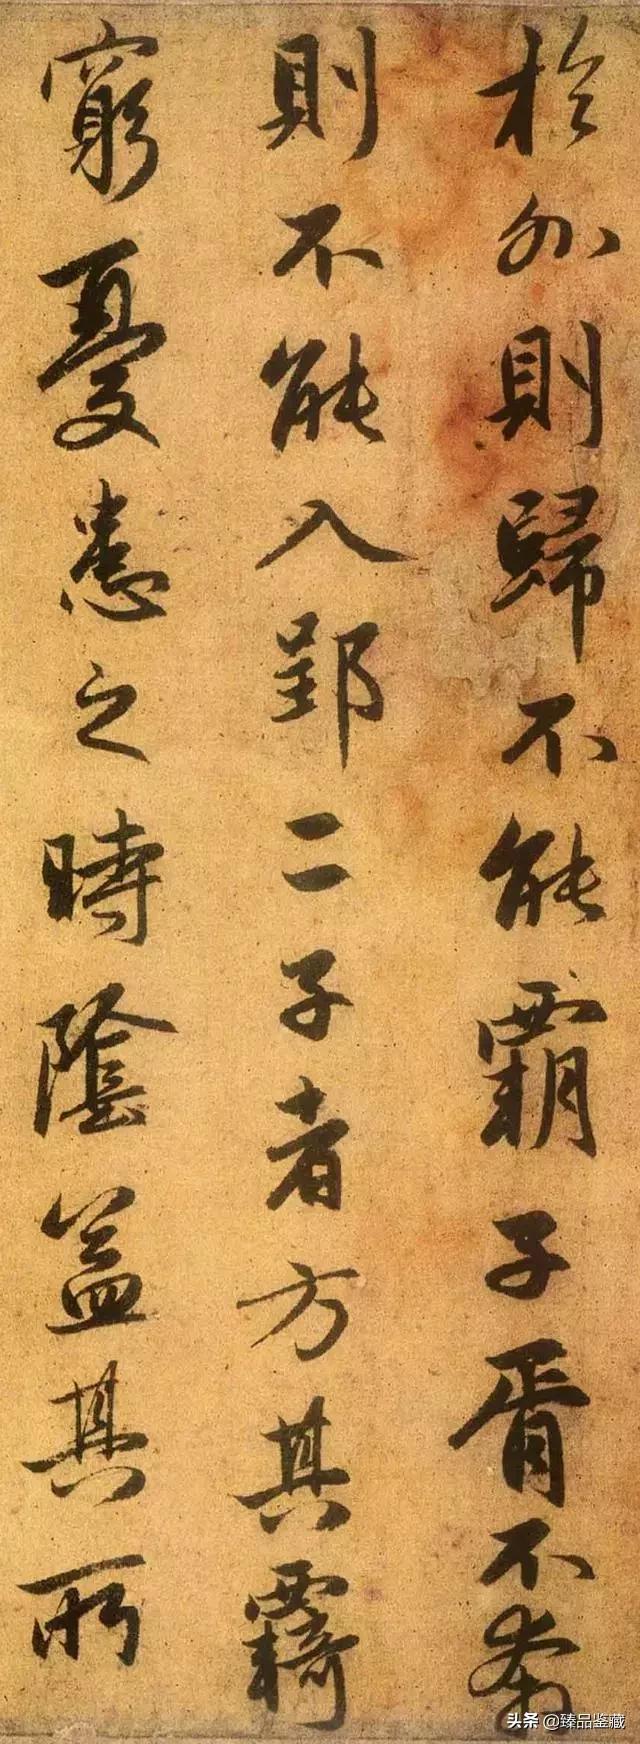 於外則歸不能覇子胥不奔
則不能入郢二子者方其覉
窮憂患之時陰益其所
头条 @臻品鉴藏